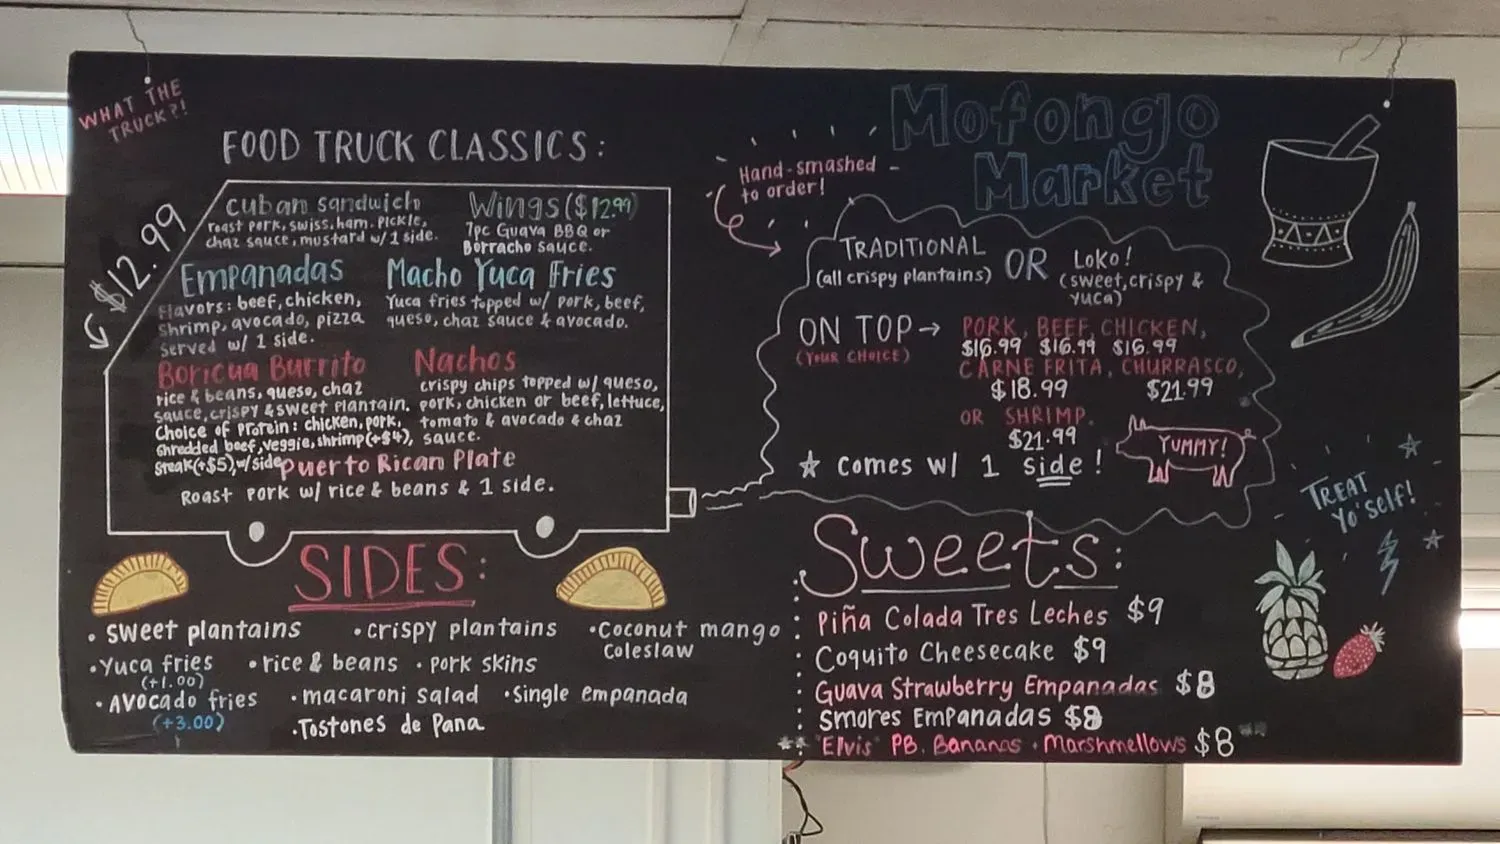 WHAT THE
TRUCK?!
FOOD TRUCK CLASSICS:
$12.99
Cuban sandwich
roast pork, swiss, ham, pickle,
chaz sauce, mustard w/ 1 side.
Wings ($12.99)
7pc Guava BBQ or
Borracho sauce.
Empanadas
Flavors: beef, chicken,
shrimp, avocado, pizza
served w/ 1 side.
Macho Yuca Fries
Yuca fries topped w/ pork, beef,
queso, chaz sauce & avocado.
Boricua Burrito
rice & beans, queso, chaz
sauce, crispy & sweet plantain.
Choice of Protein: chicken, pork,
shredded beef, veggie, shrimp (+$4),
steak (+$5), w/ side
Nachos
crispy chips topped w/ queso,
pork, chicken or beef, lettuce,
tomato & avocado & chaz
sauce.
Puerto Rican Plate
Roast pork w/ rice & beans & 1 side.
SIDES:
• sweet plantains • crispy plantains • Coconut mango
Coleslaw
• Yuca fries • rice & beans • pork skins
(+1.00)
• Avocado fries • macaroni salad • single empanada
(+3.00)
• Tostones de Pana
Mofongo
Market
Hand-smashed
to order!
TRADITIONAL
(all crispy plantains)
OR
Loko!
(sweet, crispy &
yuca)
ON TOP →
(YOUR CHOICE)
PORK, BEEF, CHICKEN,
$16.99 $16.99 $16.99
CARNE FRITA, CHURRASCO,
$18.99 $21.99
OR SHRIMP.
$21.99
☆ comes w/ 1 side!
YUMMY!
TREAT
Yo'self!
Sweets:
Piña Colada Tres Leches $9
Coquito Cheesecake $9
Guava Strawberry Empanadas $8
Smores Empanadas $8
"Elvis" PB. Bananas • Marshmellows $8